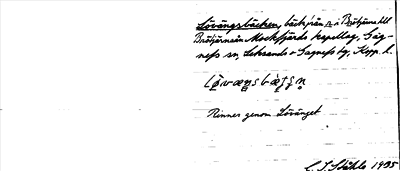 Lövängsbäcken, bäck från n. i Brötjärna till
Brötjärnaån Mockfjärds kapellag, Gag-
nefs sn, Leksands o Gagnefs tg, Kopp. l.
Rinner genom Lövänget
C. I. Ståhle 1935